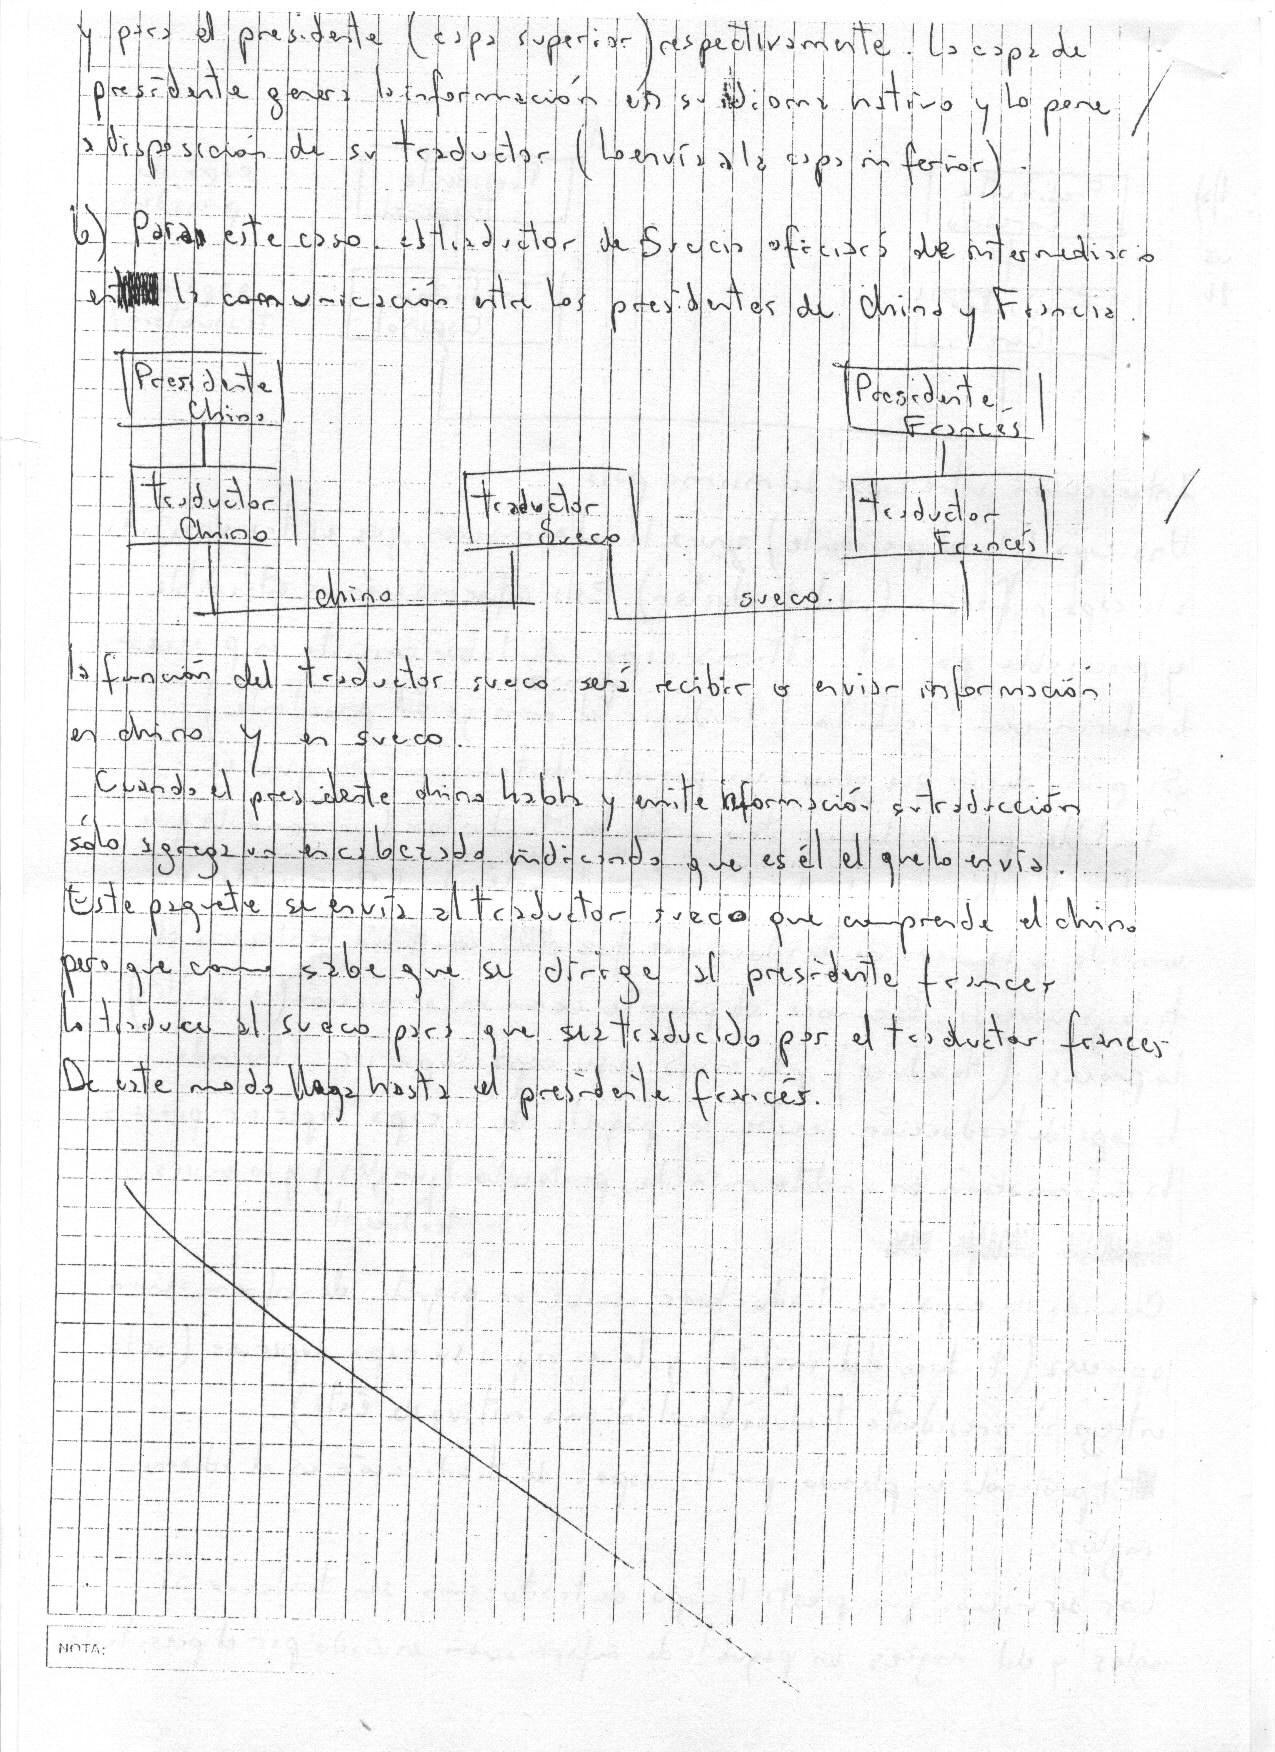 y para el presidente (capa superior) respectivamente. La capa de
presidente genera la información en su idioma nativo y lo pone
a disposición de su traductor (lo envía a la capa inferior).
b) Para este caso. el traductor de Suecia oficiará de intermediario
en la comunicación entre los presidentes de China y Francia.
Presidente
Chino
Presidente
Francés
traductor
Chino
traductor
Sueco
traductor
Francés
chino
sueco.
la función del traductor sueco será recibir o enviar información
en chino y en sueco.
Cuando el presidente chino habla y emite información su traducción
sólo agrega un encabezado indicando que es él el que lo envía.
Este paquete se envía al traductor sueco que comprende el chino
pero que como sabe que se dirige al presidente frances
lo traduce al sueco para que sea traducido por el traductor frances
De este modo llega hasta el presidente francés.
NOTA: